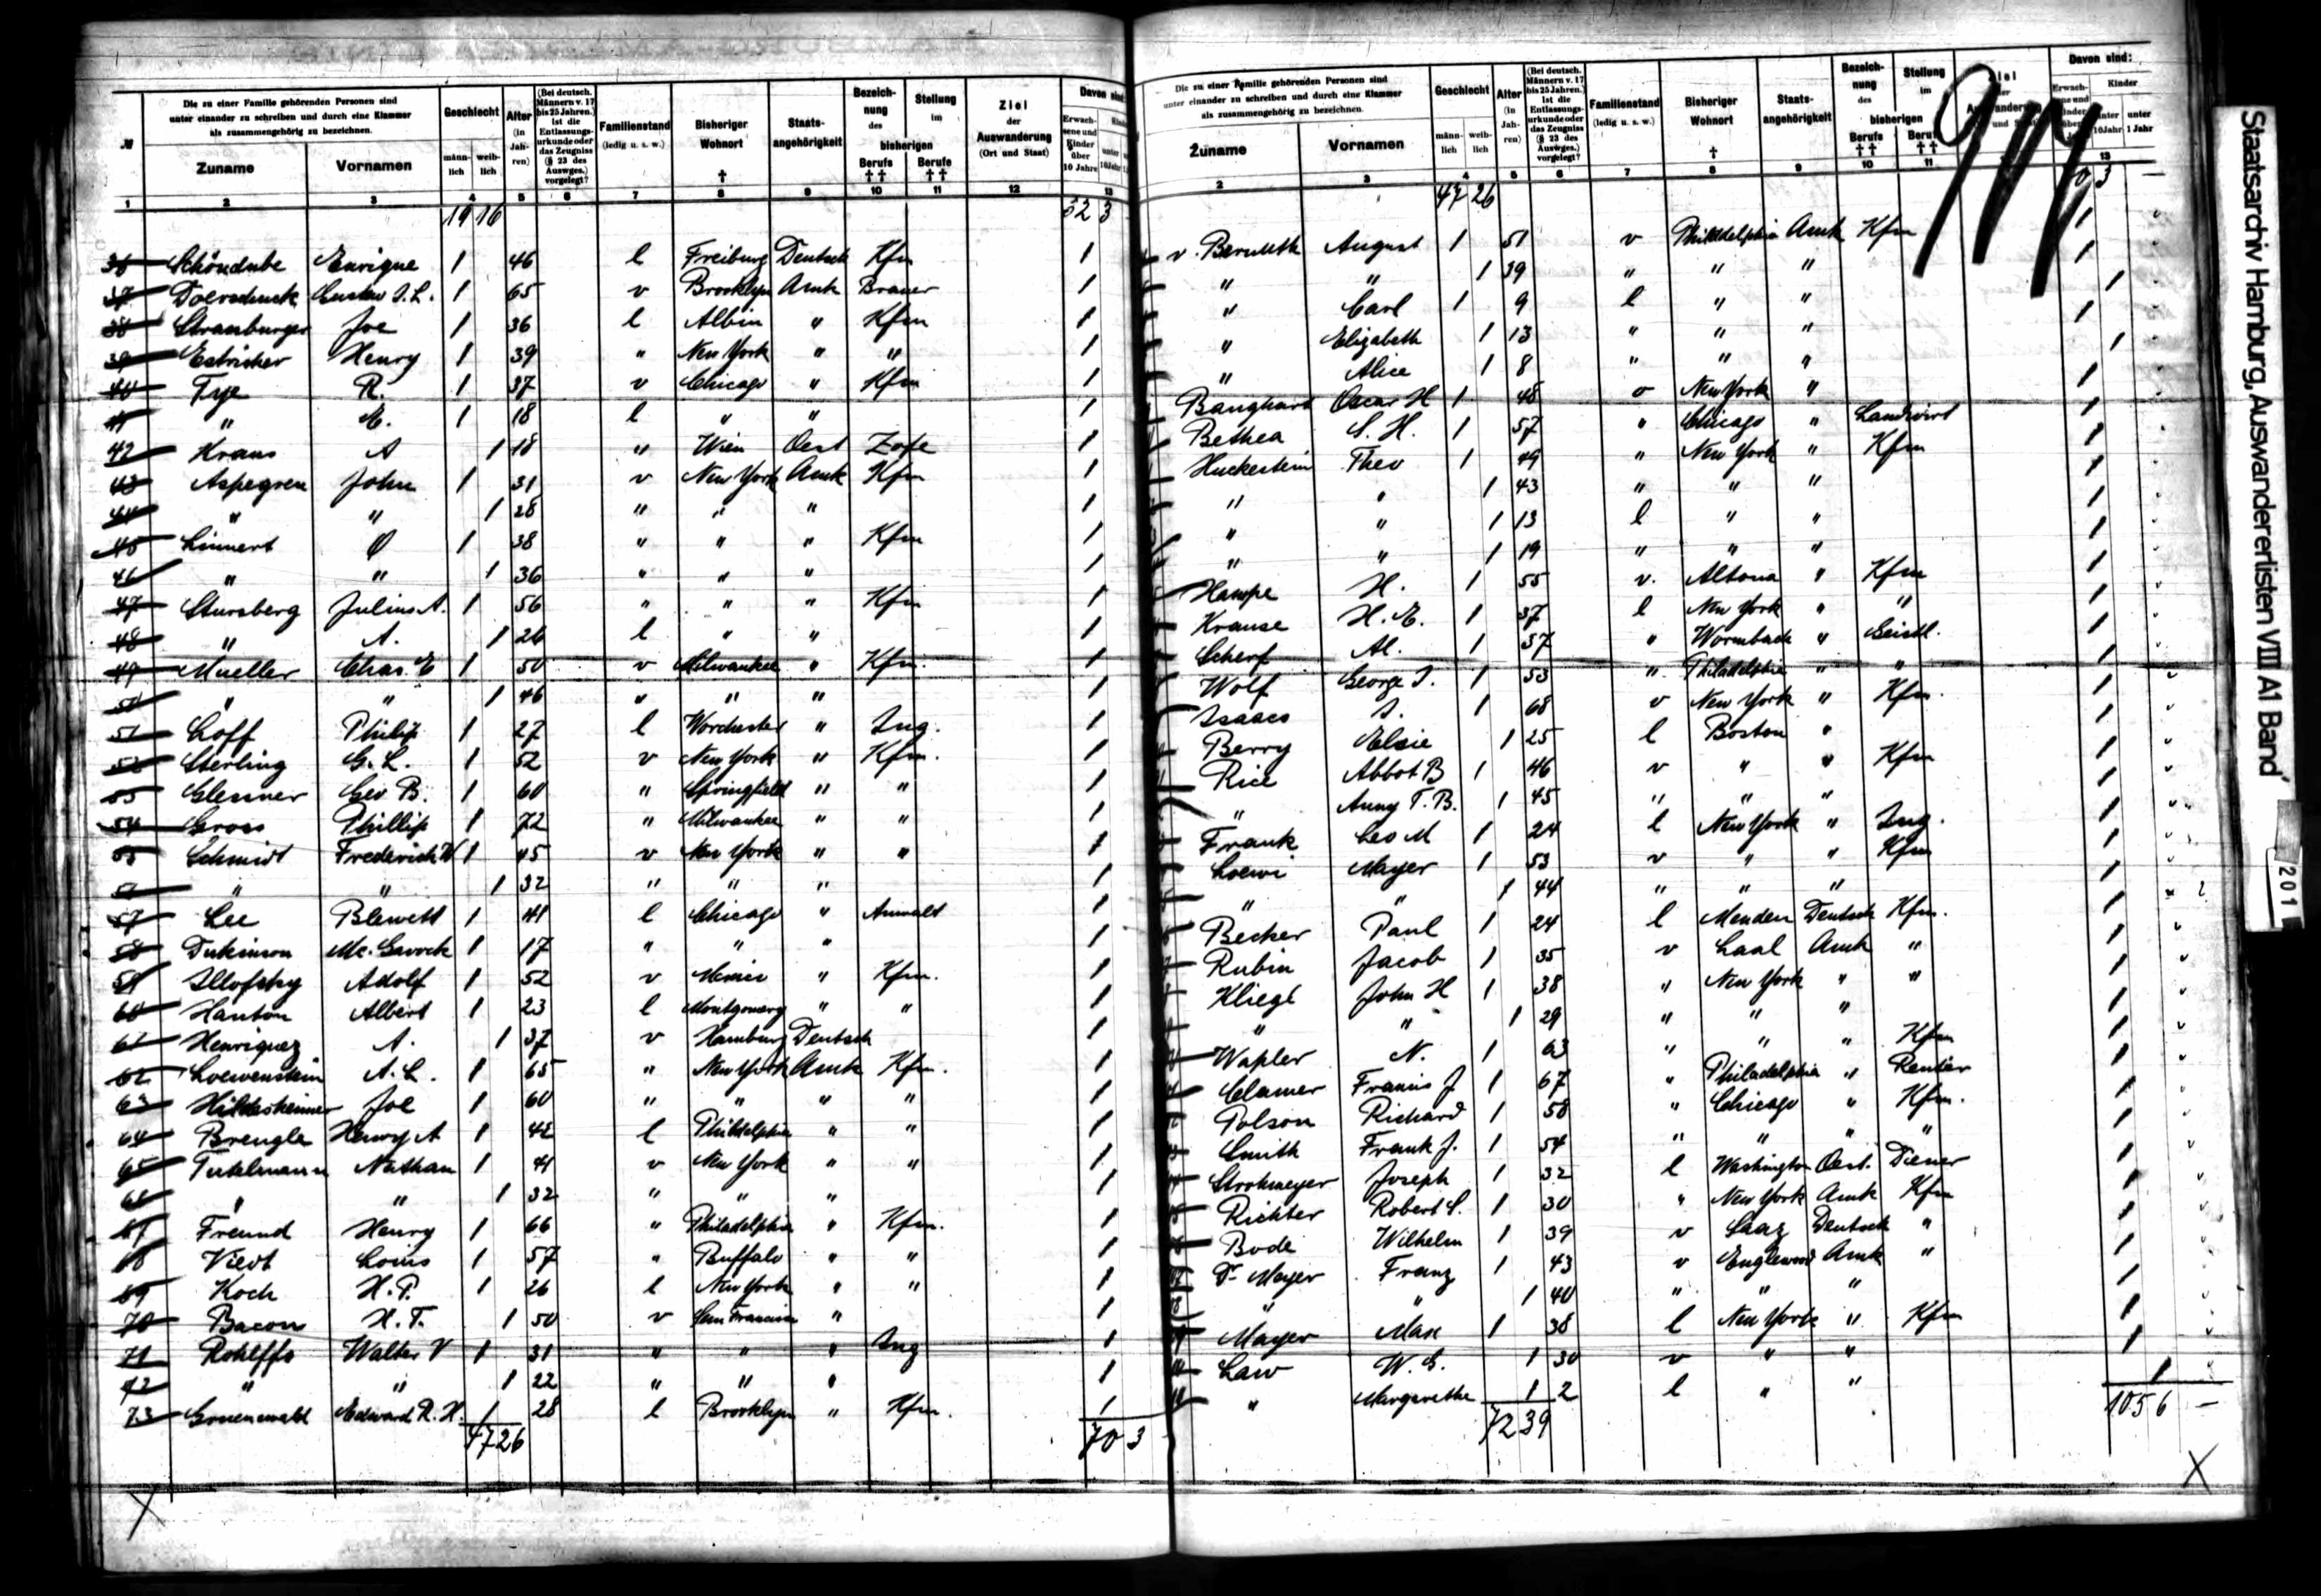 Die zu einer Familie gehörenden Personen sind
unter einander zu schreiben und durch eine Klammer
als zusammengehörig zu bezeichnen.
Zuname Vornamen
Geschlecht
männ-lich weib-lich
Alter (in Jah-ren)
(Bei deutsch. Männern v. 17 bis 25 Jahren.) ist die Entlassungs-urkunde oder das Zeugniss (§ 23 des Auswges.) vorgelegt?
Familienstand (ledig u. s. w.)
Bisheriger Wohnort †
Staats-angehörigkeit
Bezeich-nung des Stellung im bisherigen
Berufs †† Berufe ††
Ziel der Auswanderung (Ort und Staat)
Davon sind
Erwach-sene und Kinder über 10 Jahre
1 2 3 4 5 6 7 8 9 10 11 12 13
19 16 52 3
36 Schöndube Enrique 1 46 l Freiburg Deutsch Kfm 1
37 Gustav 1 65 v Brooklyn Amk Brauer 1
38 Strasburger Joe 1 36 l Albin " Kfm 1
39 Henry 1 39 " New York " " 1
40 Tye R. 1 37 v Chicago " Kfm 1
41 " E. 1 18 l " " 1
42 Kraus A 1 18 " Wien Oest Zofe 1
43 Aspegren John 1 31 v New York Amk Kfm 1
44 " " 1 28 " " " 1
45 Linnert 1 38 " " " Kfm 1
46 " " 1 36 " " " 1
47 Stursberg Julius A. 1 56 " " " Kfm 1
48 " A. 1 26 l " " 1
49 Mueller Chas. E 1 50 v Milwaukee " Kfm. 1
50 " " 1 46 " " " 1
51 Loff Philip 1 27 l Worchester " Ing. 1
52 Sterling G. L. 1 52 v New York " Kfm. 1
53 Glessner Geo B. 1 60 " Springfield " " 1
54 Gross Phillip 1 72 " Milwaukee " " 1
55 Schmidt Frederick W 1 45 v New York " " 1
56 " " 1 32 " " " 1
57 Lee Blewett 1 41 l Chicago " Anwalt 1
58 Dickinson Mc. Gavock 1 17 " " " 1
59 Illofsky Adolf 1 52 v " Kfm. 1
60 Hanton Albert 1 23 l Montgomery " " 1
61 Henriquez A. 1 37 v Hamburg Deutsch 1
62 Loewenstein A. L. 1 65 " New York Amk Kfm. 1
63 Hildesheimer Joe 1 60 " " " " 1
64 Brengle Henry A 1 42 l Philadelphia " " 1
65 Nathan 1 41 v New York " " 1
66 " " 1 32 " " " 1
67 Freund Henry 1 66 " Philadelphia " Kfm. 1
68 Viedt Louis 1 57 " Buffalo " " 1
69 Koch H. P. 1 26 l New York " " 1
70 Bacon H. T. 1 50 v San Francisco " 1
71 Rohlffs Walter V 1 31 " " " Ing 1
72 " " 1 22 " " " 1
73 Gruenewald Edward R. H. 1 28 l Brooklyn " Kfm. 1
47 26 70 3
Die zu einer Familie gehörenden Personen sind
unter einander zu schreiben und durch eine Klammer
als zusammengehörig zu bezeichnen.
Zuname Vornamen
Geschlecht
männ-lich weib-lich
Alter (in Jah-ren)
(Bei deutsch. Männern v. 17 bis 25 Jahren.) ist die Entlassungs-urkunde oder das Zeugniss (§ 23 des Auswges.) vorgelegt?
Familienstand (ledig u. s. w.)
Bisheriger Wohnort †
Staats-angehörigkeit
Bezeich-nung des Stellung im bisherigen
Berufs †† Berufe ††
Davon sind:
Kinder
unter 10 Jahr unter 1 Jahr
2 3 4 5 6 7 8 9 10 11 13
47 26 70 3
v. Bernuth August 1 51 v Philadelphia Amk Kfm 1
" " 1 39 " " " 1
" Carl 1 9 l " " 1
" Elizabeth 1 13 " " " 1
" Alice 1 8 " " " 1
Banghart Oscar H 1 48 v New York " 1
Bethea S. H. 1 57 " Chicago " Landwirt 1
Huckestein Theo 1 49 " New York " Kfm 1
" " 1 43 " " " 1
" " 1 13 l " " 1
" " 1 19 " " " 1
Hampe H. 1 55 v. Altona " Kfm 1
Krause H. E. 1 37 l New York " " 1
Scherf Al. 1 57 " Wormbach " Geistl. 1
Wolf George J. 1 53 " Philadelphia " " 1
Isaacs S. 1 68 v New York " Kfm. 1
Berry Elsie 1 25 l Boston " 1
Rice Abbot B 1 46 v " " Kfm 1
" Anny T. B. 1 45 " " " 1
Frank Leo M 1 24 l New York " Ing. 1
Loewi Mayer 1 53 v " " Kfm 1
" " 1 44 " " " 1
Becker Paul 1 24 l Menden Deutsch Kfm. 1
Rubin Jacob 1 35 v Laal Amk " 1
Kliegl John H 1 38 " New York " " 1
" " 1 29 " " " 1
Wapler N. 1 63 " " " Kfm 1
Clamer Francis J 1 67 " Philadelphia " Rentier 1
Polson Richard 1 58 " Chicago " Kfm. 1
Smith Frank J. 1 54 " " " " 1
Strohmeyer Joseph 1 32 l Washington Oest. Diener 1
Richter Robert S. 1 30 " New York Amk Kfm 1
Bode Wilhelm 1 39 v Saaz Deutsch " 1
Dr Mayer Franz 1 43 v Englewood Amk " 1
" " 1 40 " " " 1
Mayer Max 1 38 l New York " Kfm 1
Law W. G. 1 30 v " " 1
" Margarethe 1 2 l " " 1
72 39 105 6 —
Staatsarchiv Hamburg, Auswandererlisten VIII A1 Band'
201